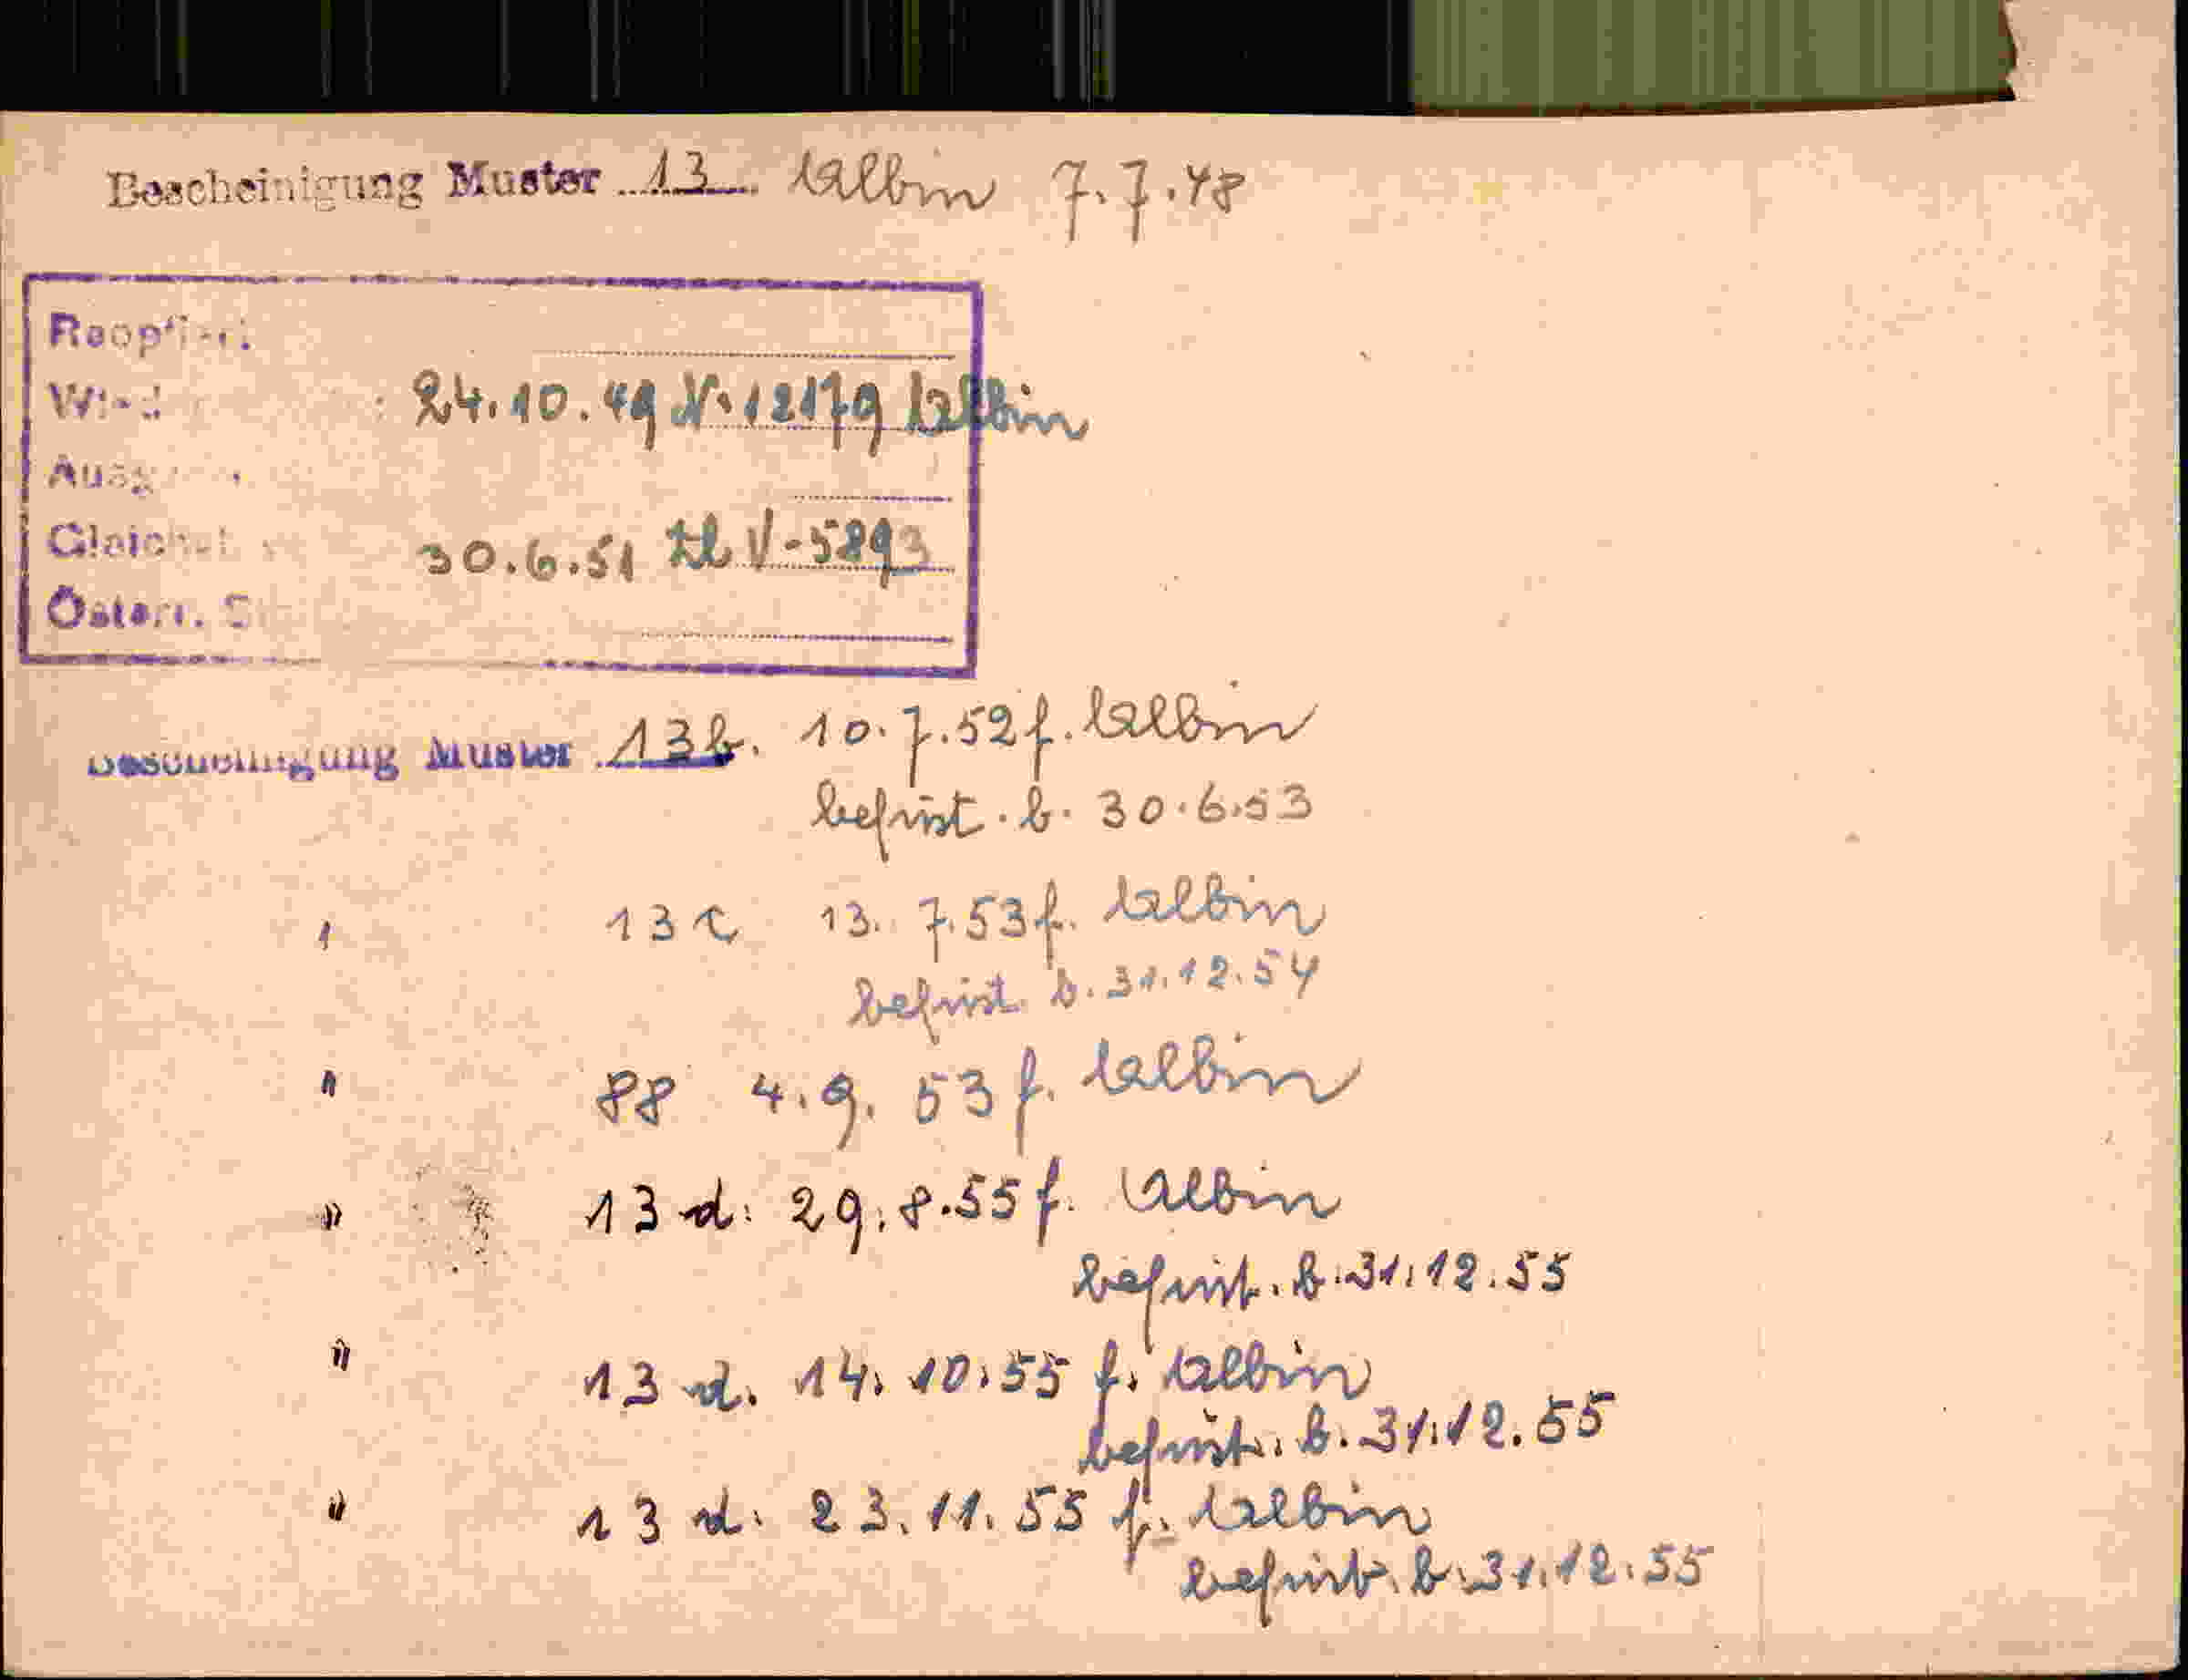 Bescheinigung Muster 13 Albin 7.7.48
Reopt
24.10.49 V-12179 Albin
Ausg
30.6.51 Zl V-5893
Österr. S
Bescheinigung Muster 13b. 10.7.52 f. Albin
befrist. b. 30.6.53
" 13c 13. 7.53 f. Albin
befrist. b. 31.12.54
" 88 4.9. 53 f. Albin
" 13 d. 29.8.55 f. Albin
befrist. b. 31.12.55
" 13 d. 14. 10.55 f. Albin
befrist. b. 31.12.55
" 13 d. 23.11.55 f. Albin
befrist. b. 31.12.55